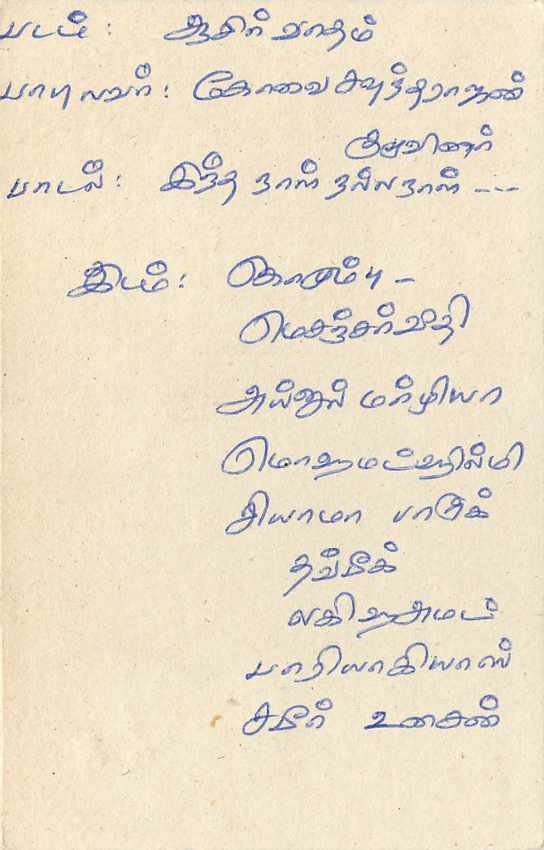 படம் : ஆசிர் வாதம்
பாடியவர் : கோவை சவுந்தரராஜன்
குழுவினர்
பாடல் : இந்த நாள் நல்ல நாள் ---
இடம் : கொழும்பு -
மெசஞ்சர்வீதி
அய்னுல் மர்ழியா
மொஹமட்ஹில்மி
சியாமா பாரூக்
தவ்பீக்
லகிஹஅமட்
பாரியாகியாஸ்
சமீர் உசைன்